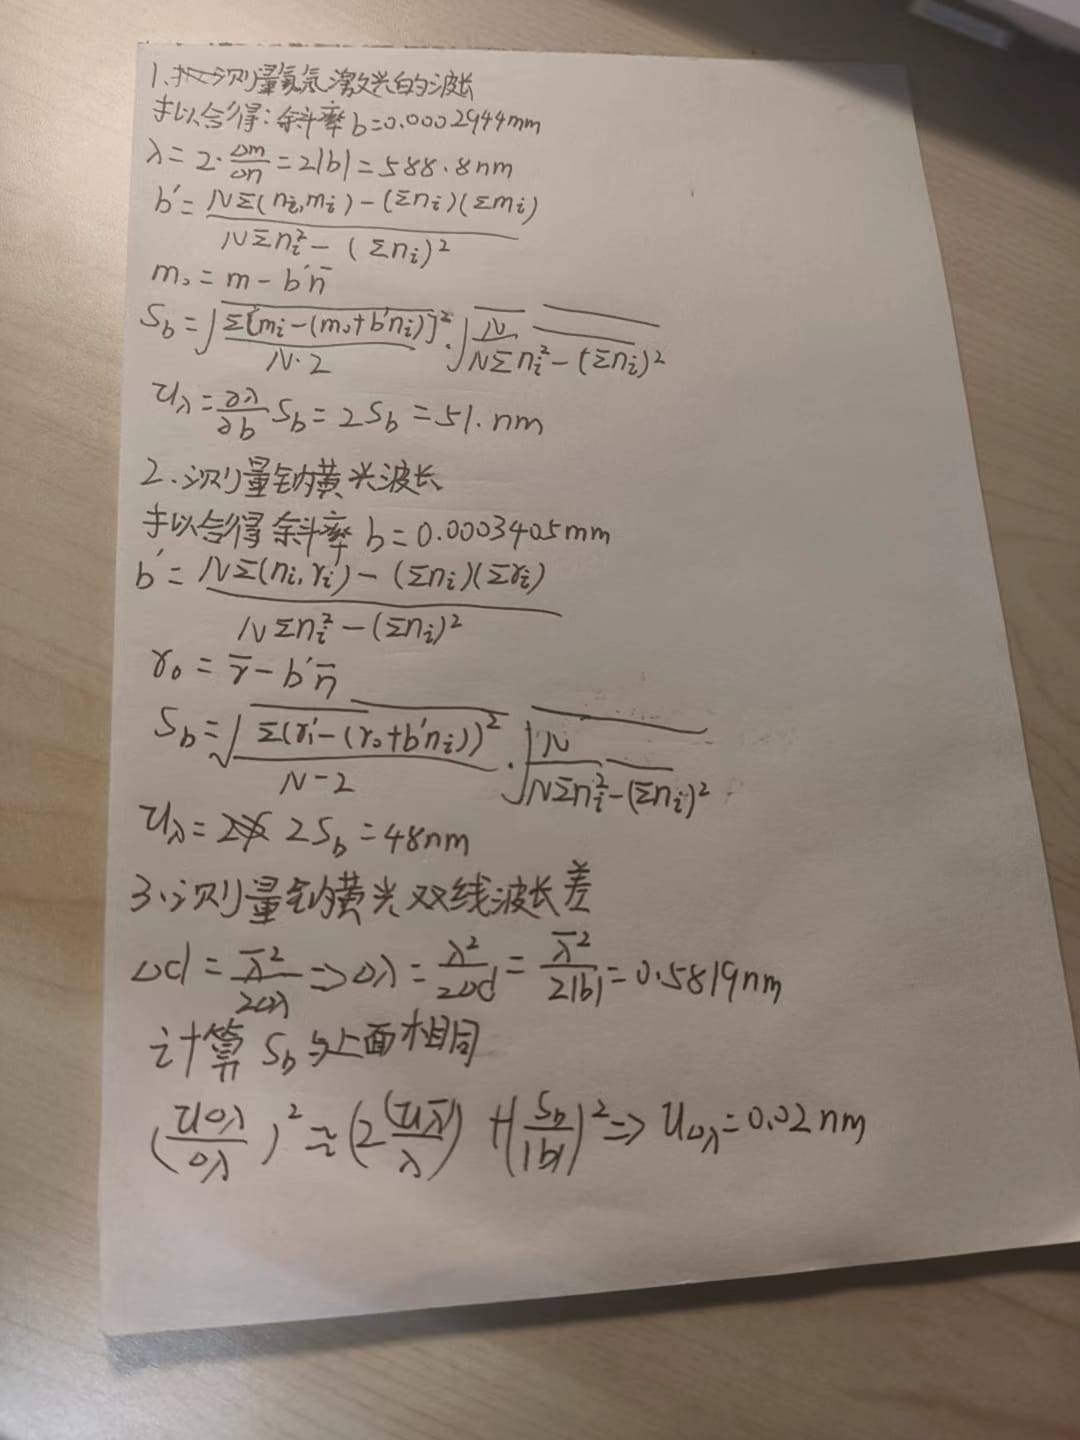 1.测量氦氖激光的波长
拟合得:斜率b=0.0002944mm
λ=2·Δm/Δn=2|b|=588.8nm
b'=NΣ(nᵢ,mᵢ)-(Σnᵢ)(Σmᵢ)/NΣnᵢ²-(Σnᵢ)²
m₀=m-b'n̄
S_b=√Σ[mᵢ-(m₀+b'nᵢ)]²/N·2·√N/NΣnᵢ²-(Σnᵢ)²
u_λ=∂λ/∂b S_b=2S_b=51.nm
2.测量钠黄光波长
拟合得斜率b=0.0003405mm
b'=NΣ(nᵢ,rᵢ)-(Σnᵢ)(Σrᵢ)/NΣnᵢ²-(Σnᵢ)²
r₀=r̄-b'n̄
S_b=√Σ(rᵢ-(r₀+b'nᵢ))²/N-2·√N/NΣnᵢ²-(Σnᵢ)²
u_λ=2S_b=48nm
3.测量钠黄光双线波长差
Δd=λ̄²/2Δλ⇒Δλ=λ²/2Δd=λ̄²/2|b|=0.5819nm
计算S_b与上面相同
(uΔλ/Δλ)²≈(2(uλ̄)/λ)+(S_b/|b|)²⇒u_Δλ=0.02nm